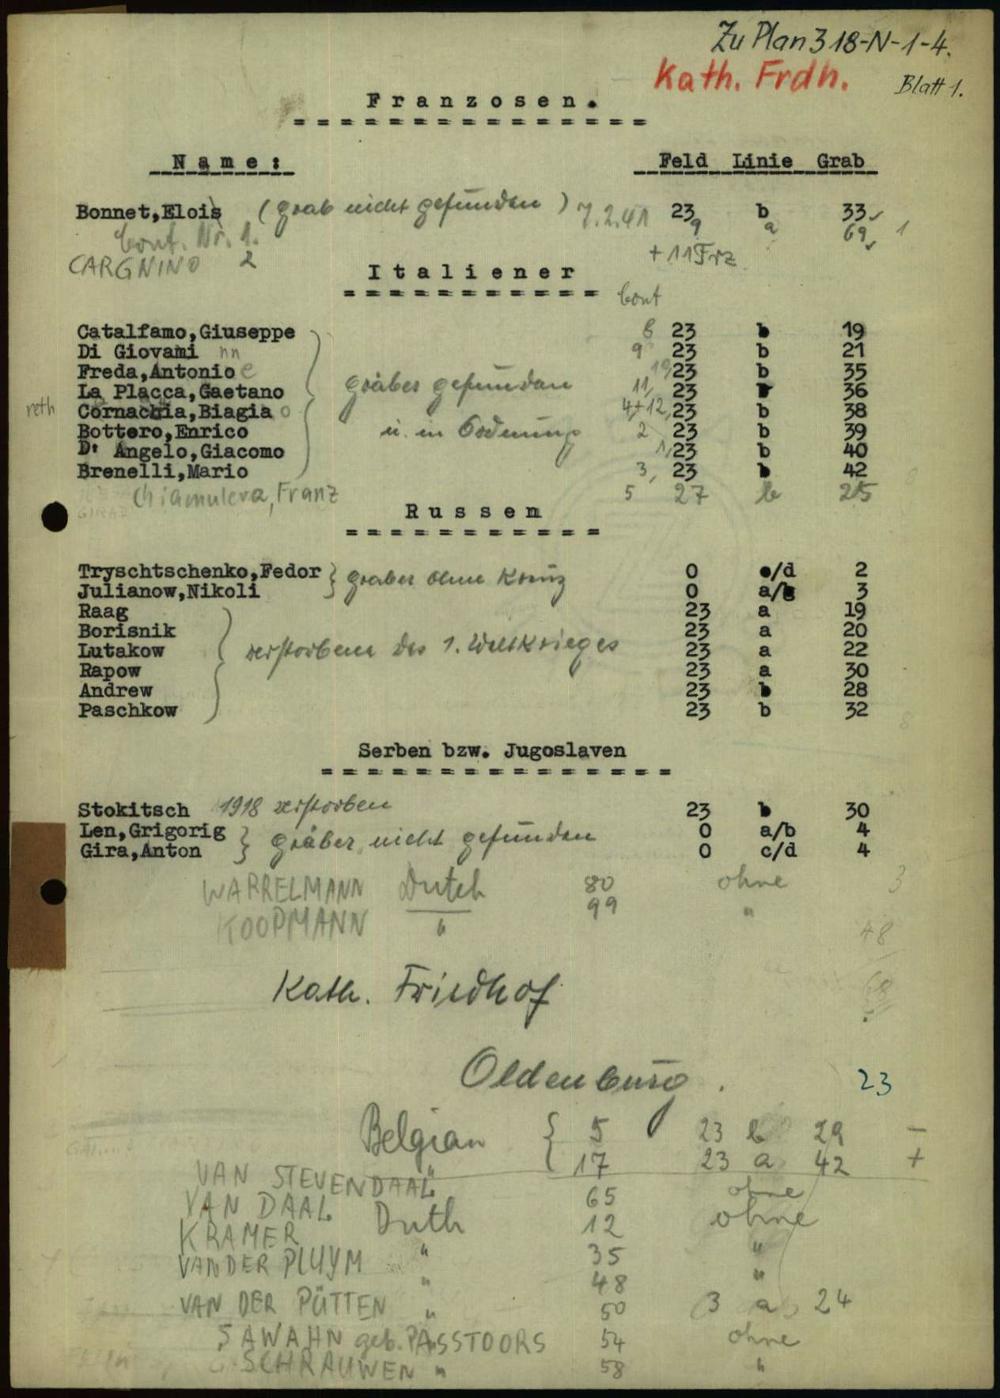 Zu Plan 318-N-1-4.
Kath. Frdh. Blatt 1.
Franzosen.
Name: Feld Linie Grab
Bonnet,Elois (grab nicht gefunden) 7.2.41 23 b 33
Cont. Nr. 1. 9 a 69 1
CARGNINO 2 + 11 Frz
Italiener
Cont
Catalfamo,Giuseppe 6 23 b 19
Di Giovami nn 9 23 b 21
Freda,Antonio e 19 23 b 35
La Placca,Gaetano gräber gefunden 11, 23 b 36
reth Cornachia,Biagia o 4+12, 23 b 38
Bottero,Enrico u. in Ordnung 2 23 b 39
D' Angelo,Giacomo 1, 23 b 40
Brenelli,Mario 3, 23 b 42
Chiamulera, Franz 5 27 b 25
Russen
Tryschtschenko,Fedor } graber ohne Kreuz 0 e/d 2
Julianow,Nikoli 0 a/g 3
Raag 23 a 19
Borisnik 23 a 20
Lutakow verstorbene des 1. Weltkrieges 23 a 22
Rapow 23 a 30
Andrew 23 b 28
Paschkow 23 b 32
Serben bzw. Jugoslaven
Stokitsch 1918 verstorben 23 b 30
Len,Grigorig } gräber nicht gefunden 0 a/b 4
Gira,Anton 0 c/d 4
WARRELMANN Dutch 80 ohne 3
KOOPMANN " 99 "
48
Kath. Friedhof
Oldenburg. 23
Belgian { 5 23 b 29 –
" 17 23 a 42 +
VAN STEVENDAAL 65 ohne
VAN DAAL Duth 12 ohne
KRAMER " 35 "
VANDER PLUYM " 48 "
VAN DER PÜTTEN " 50 3 a 24
SAWAHN geb. PASSTOORS 54 ohne
SCHRAUWEN " 58 "